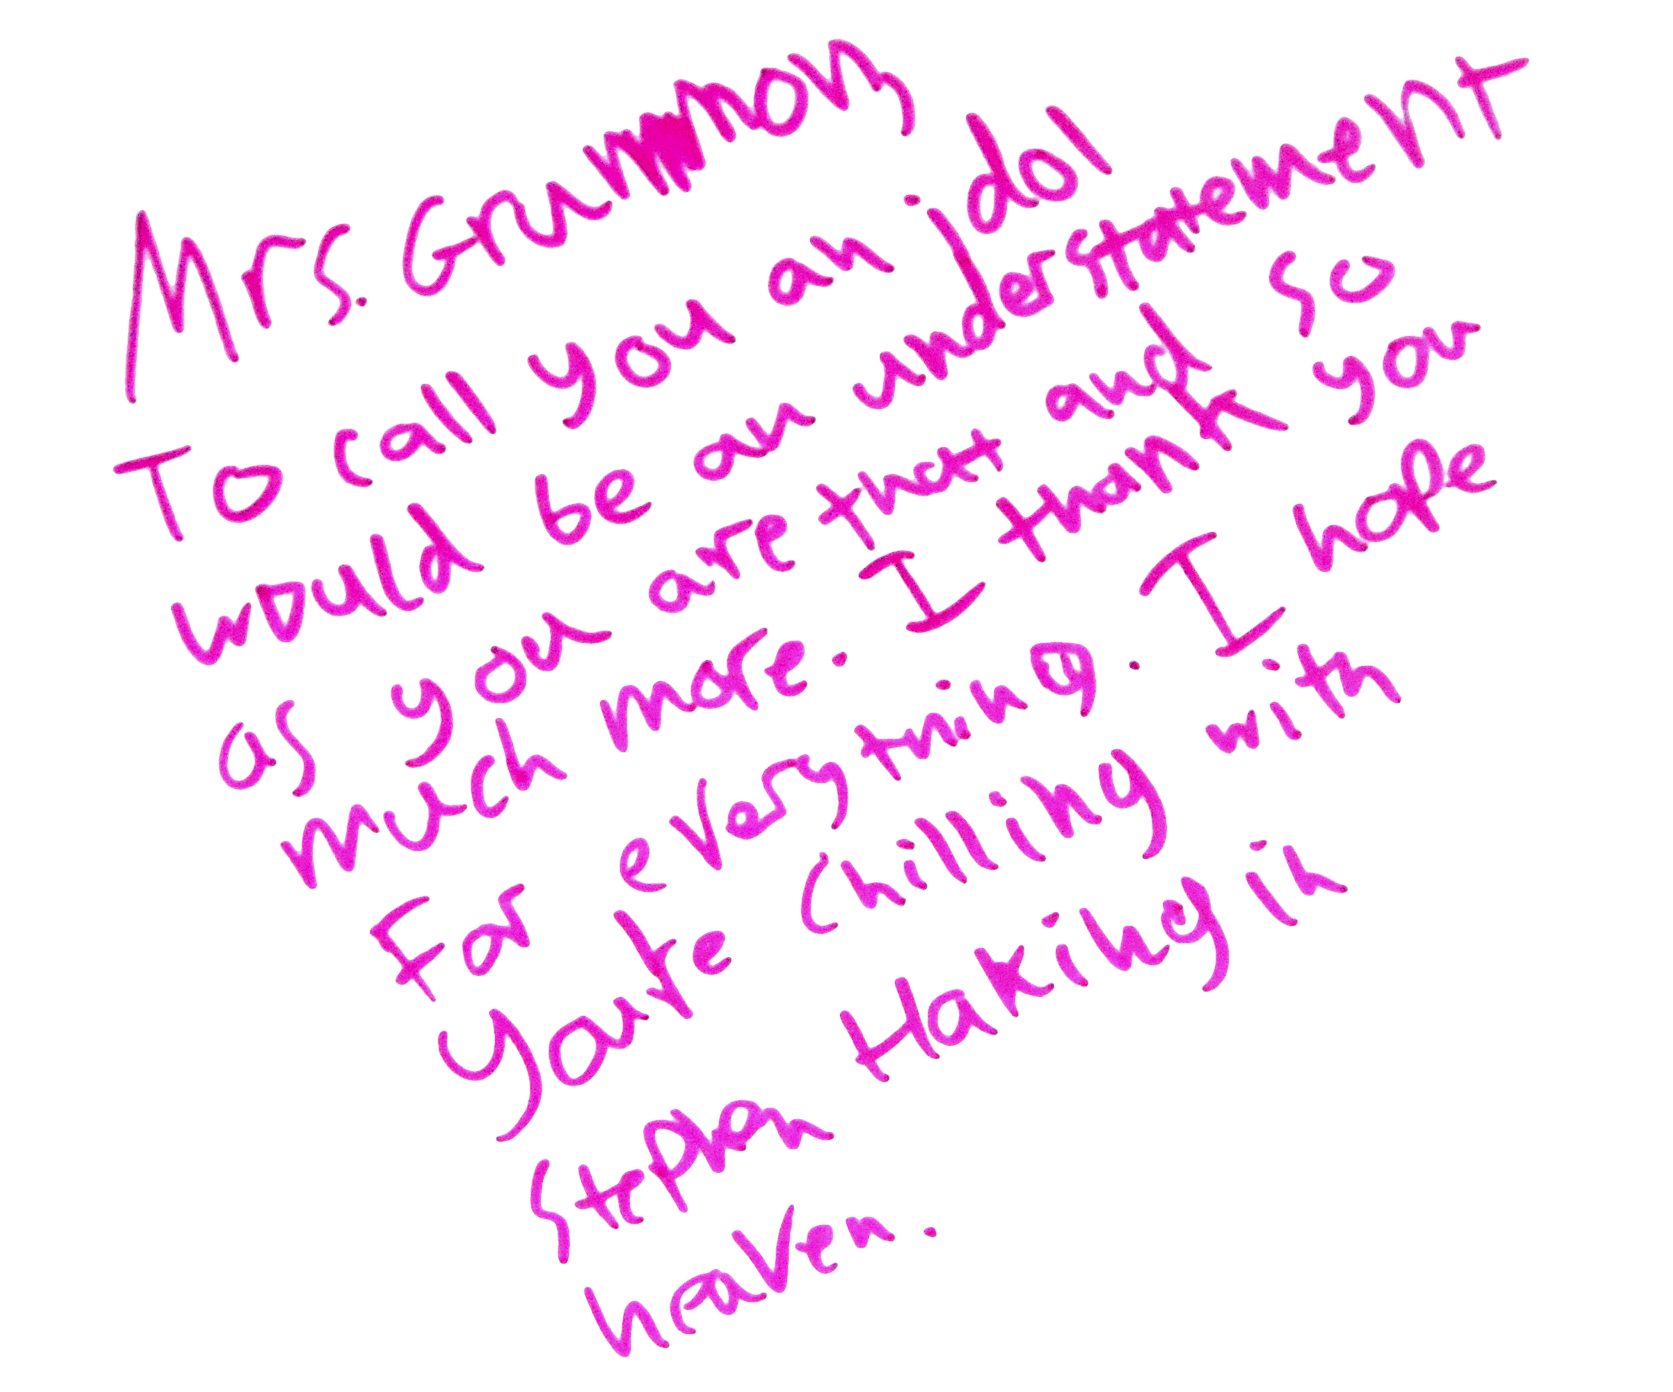 Mrs. Grummon,
To call you an idol
would be an understatement
as you are that and so
much more. I thank you
For everything. I hope
You're chilling with
Stephen Haking in
heaven.